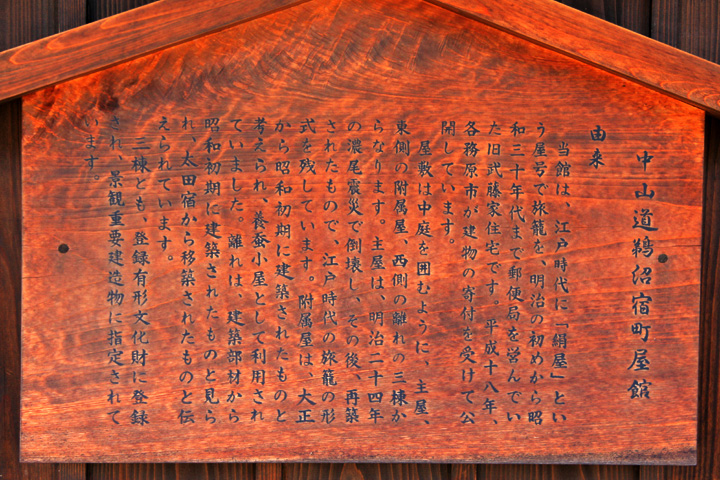 中山道鵜沼宿町屋館
由来
当館は、江戸時代に「絹屋」とい
う屋号で旅籠を、明治の初めから昭
和三十年代まで郵便局を営んでい
た旧武藤家住宅です。平成十八年、
各務原市が建物の寄付を受けて公
開しています。
屋敷は中庭を囲むように、主屋、
東側の附属屋、西側の離れの三棟か
らなります。主屋は、明治二十四年
の濃尾震災で倒壊し、その後、再築
されたもので、江戸時代の旅籠の形
式を残しています。附属屋は、大正
から昭和初期に建築されたものと
考えられ、養蚕小屋として利用され
ていました。離れは、建築部材から
昭和初期に建築されたものと見ら
れ、太田宿から移築されたものと伝
えられています。
三棟とも、登録有形文化財に登録
され、景観重要建造物に指定されて
います。